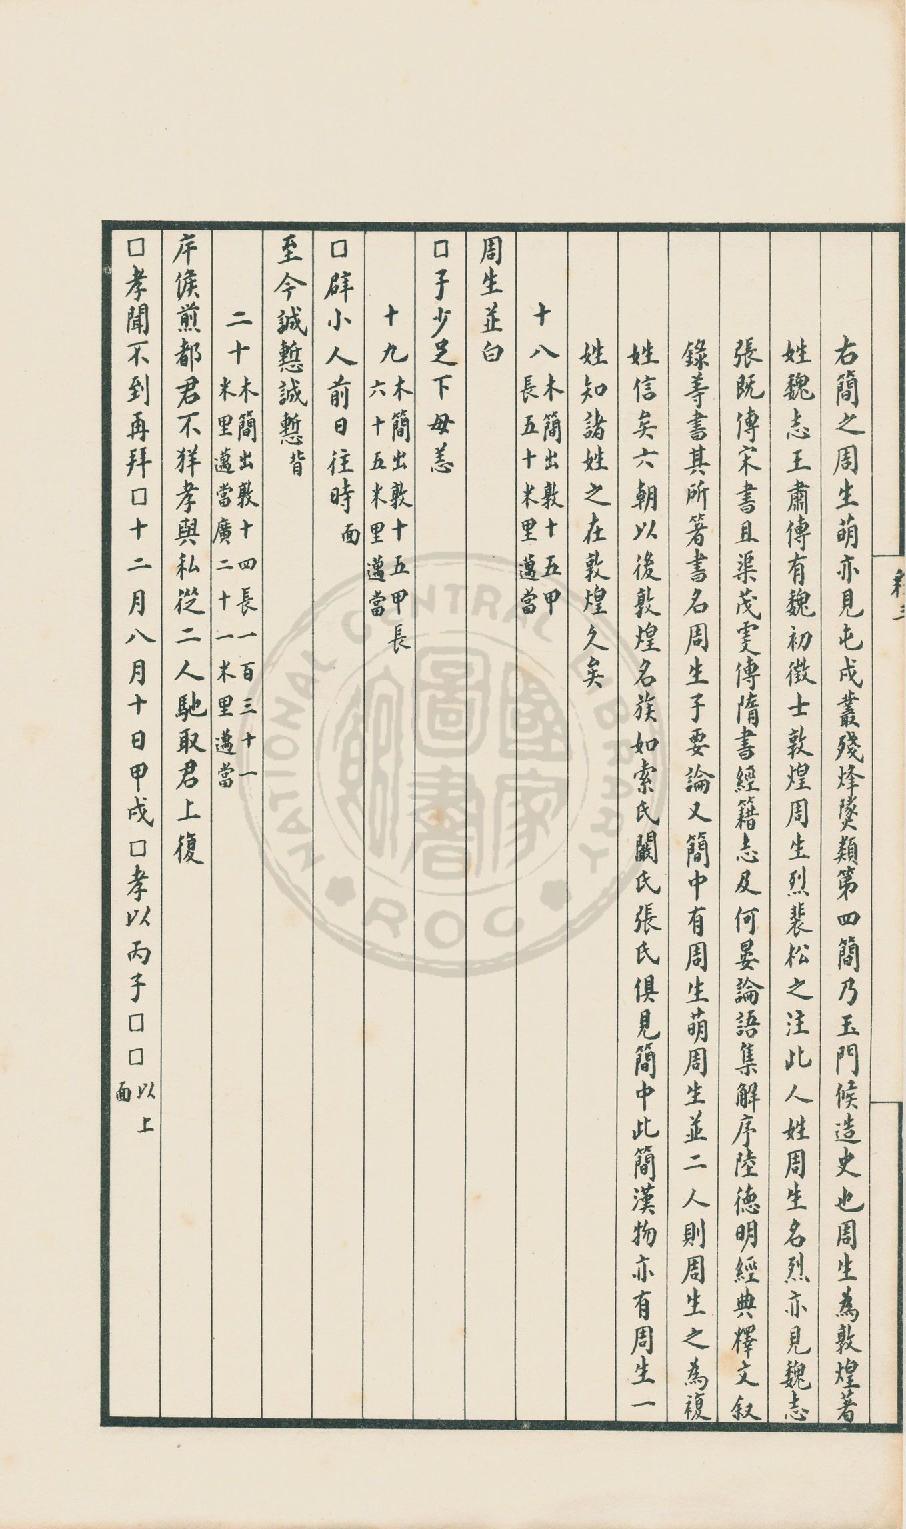 右簡之周生萌亦見屯戍叢殘烽燧類第四簡乃玉門候造史也周生為敦煌著
姓魏志王肅傳有魏初徵士敦煌周生烈裴松之注此人姓周生名烈亦見魏志
張既傳宋書且渠茂虔傳隋書經籍志及何晏論語集解序陸德明經典釋文叙
錄等書其所著書名周生子要論又簡中有周生萌周生並二人則周生之為複
姓信矣六朝以後敦煌名族如索氏闞氏張氏俱見簡中此簡漢物亦有周生一
姓知諸姓之在敦煌久矣
十八木簡出敦十五甲
長五十米里邁當
周生並白
□子少足下毋恙
十九木簡出敦十五甲長
六十五米里邁當
□辟小人前日往時面
至今誠慙誠慙背
二十木簡出敦十四長一百三十一
米里邁當廣二十一米里邁當
序侯煎都君不详孝與私從二人馳取君上復
□孝聞不到再拜□十二月八月十日甲戌□孝以丙子□□以上
面
NATIONAL CENTRAL LIBRARY
ROC
國家圖書館